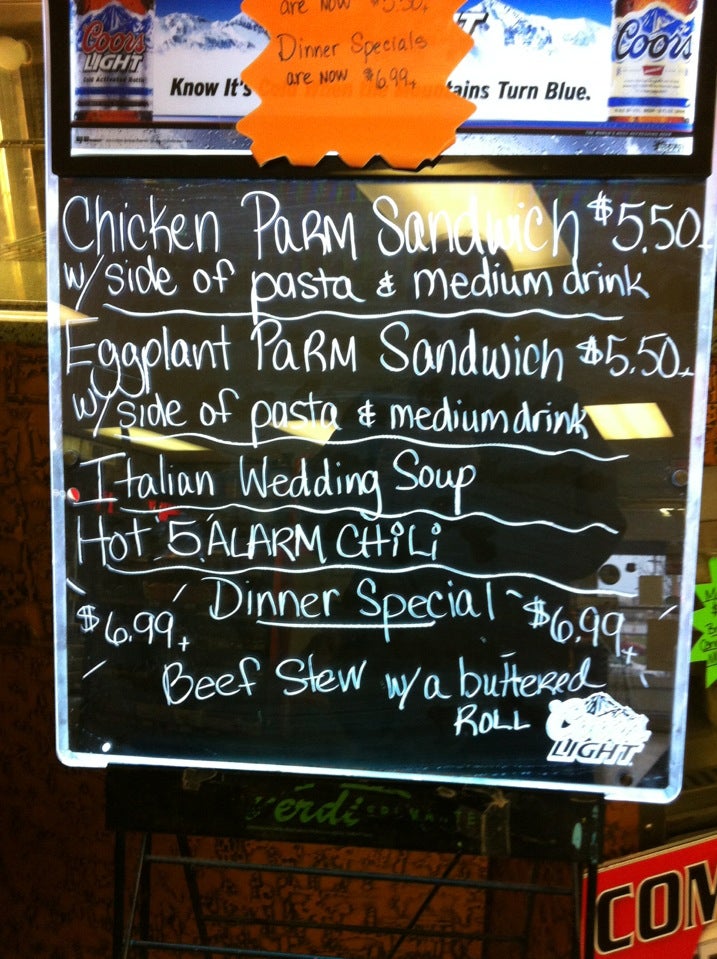 are now $5.50+
Dinner Specials
are now $6.99+
Coors
LIGHT
Know It's
ains Turn Blue.
Coors
Chicken PARM Sandwich $5.50+
w/ side of pasta & medium drink
Eggplant PARM Sandwich $5.50+
w/ side of pasta & medium drink
Italian Wedding Soup
Hot 5 ALARM CHiLi
Dinner Special
$6.99+ $6.99+
Beef Stew w/ a buttered
ROLL
LIGHT
Verdi
COM